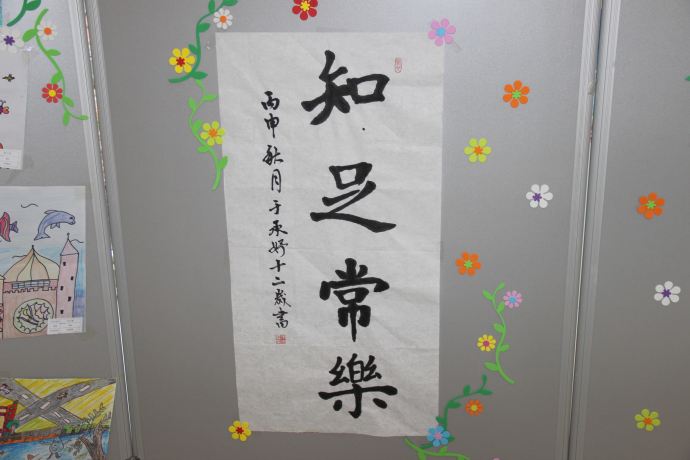 知足常樂
丙申秋月于承妤十二歲書